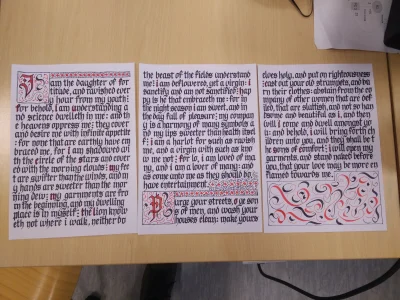 I am the daughter of for
titude, and ravished ever
y hour from my youth:
for behold, I am understanding a
nd science dwelleth in me: and th
e heavens oppress me; they cover
and desire me with infinite appetite
: for none that are earthly have em
braced me, for I am shadowed wi
th the circle of the stars and cover
ed with the morning clouds: my fee
t are swifter than the winds, and m
y hands are sweeter than the mor
ning dew; my garments are fro
m the beginning, and my dwelling
place is in myself; the lion know
eth not where i walk, neither do
the beast of the fields understand
me: i am deflowered, yet a virgin: I
sanctify and am not sanctified: hap
py is he that embraceth me: for in
the night season i am sweet, and in
the day full of pleasure; my compan
y is a harmony of many symbols a
nd my lips sweeter than health itself
I am a harlot for such as ravish
me, and a virgin with such as kno
w me not : for lo, i am lover of ma
ny, and i am a lover of many: and
as come unto me as they should do,
have entertainment.
Purge your streets, o ye son
s of men, and wash your
houses clean: make yours
elves holy, and put on righteousness
:cast out your old strumpets, and bu
rn their clothes: abstain from the co
mpany of other women that are def
iled, that are sluttish, and not so han
some and beautiful as i, and then
will i come and dwell amongst yo
u: and behold, i will bring forth ch
ildren unto you, and they shall be t
he sons of comfort: i will open my
garments, and stand naked before
you, that your love may be more en
flamed towards me.